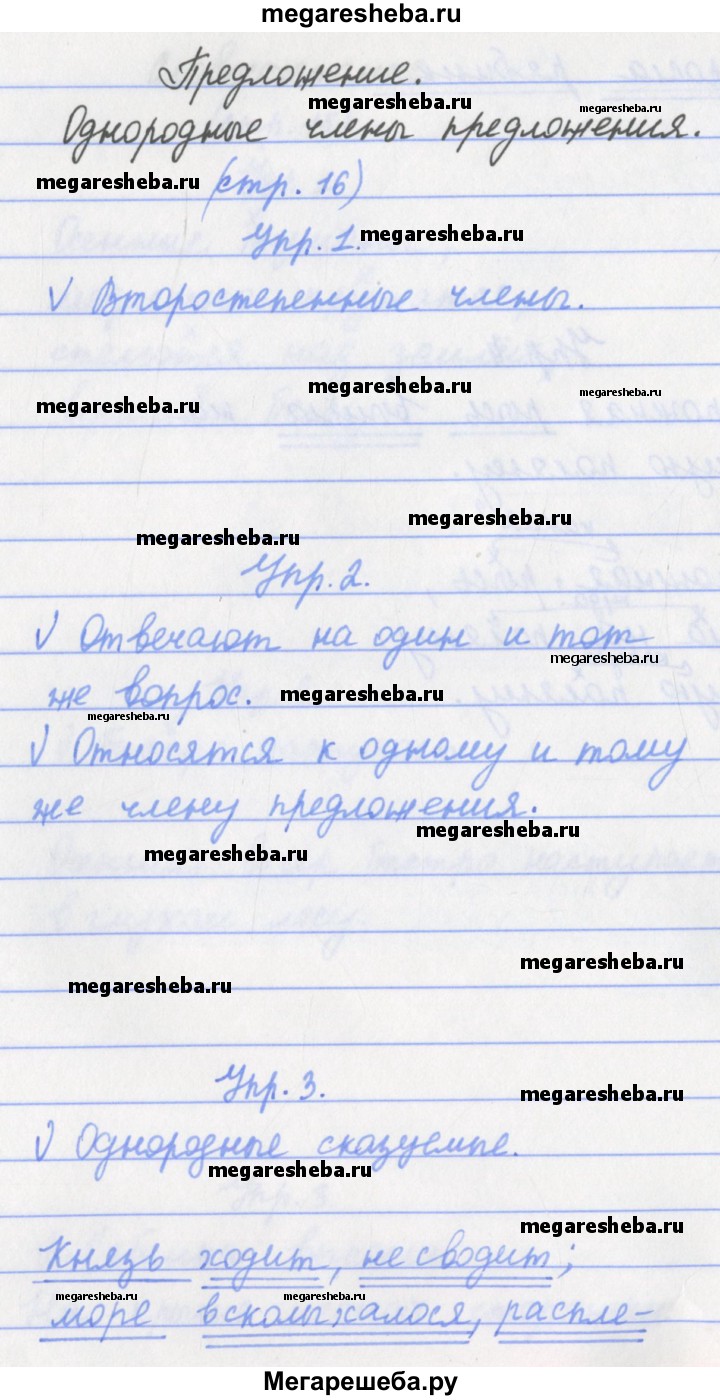 megaresheba.ru
Предложение.
megaresheba.ru
megaresheba.ru
Однородные члены предложения.
megaresheba.ru
(стр. 16)
Упр. 1.
megaresheba.ru
√ Второстепенные члены.
megaresheba.ru
megaresheba.ru
megaresheba.ru
megaresheba.ru
megaresheba.ru
Упр. 2.
√ Отвечают на один и тот
megaresheba.ru
же вопрос.
megaresheba.ru
megaresheba.ru
√ Относятся к одному и тому
же члену предложения.
megaresheba.ru
megaresheba.ru
megaresheba.ru
megaresheba.ru
Упр. 3.
megaresheba.ru
√ Однородные сказуемые.
megaresheba.ru
megaresheba.ru
Князь ходит, не сводит;
megaresheba.ru
megaresheba.ru
море всколыхалося, распле-
Мегарешеба.ру